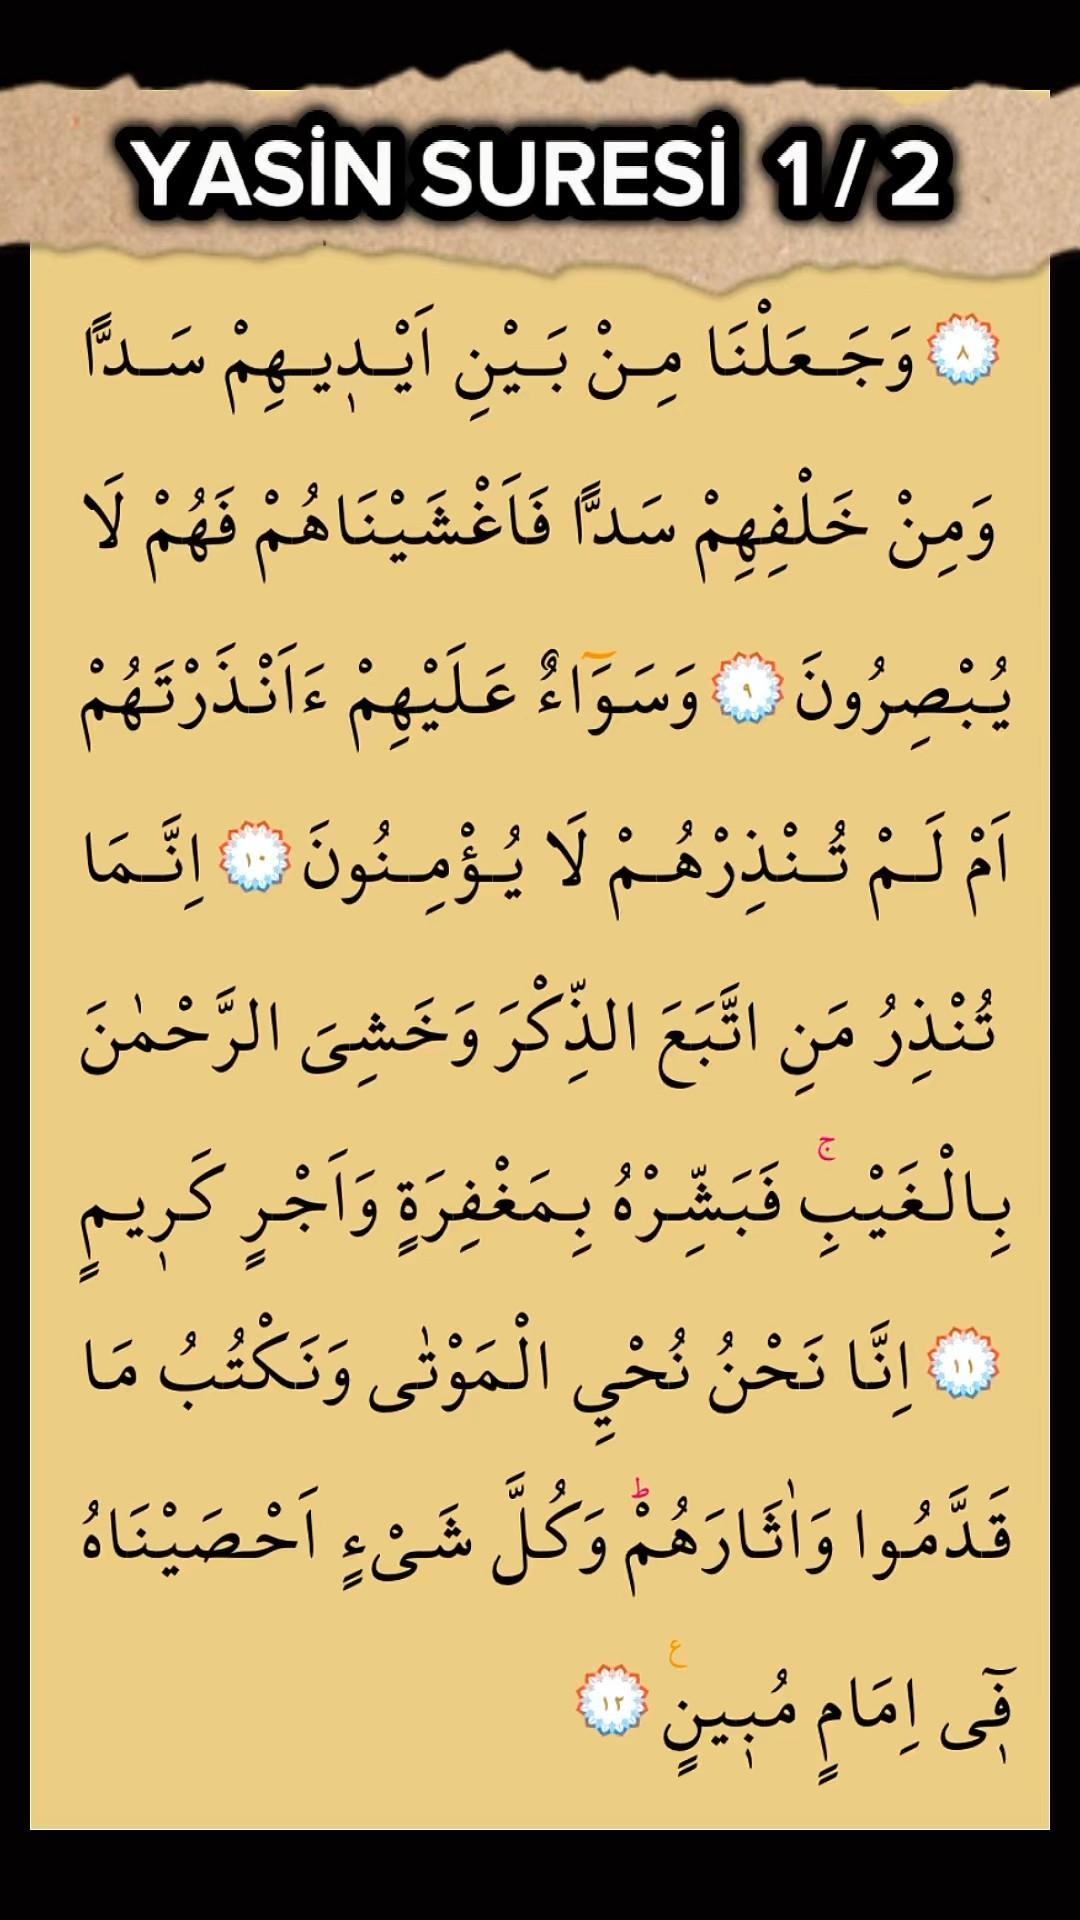 YASİN SURESİ 1/2
٨ وَجَعَلْنَا مِنْ بَيْنِ اَيْد۪يهِمْ سَدًّا
وَمِنْ خَلْفِهِمْ سَدًّا فَاَغْشَيْنَاهُمْ فَهُمْ لَا
يُبْصِرُونَ ٩ وَسَوَٓاءٌ عَلَيْهِمْ ءَاَنْذَرْتَهُمْ
اَمْ لَمْ تُنْذِرْهُمْ لَا يُؤْمِنُونَ ١٠ اِنَّمَا
تُنْذِرُ مَنِ اتَّبَعَ الذِّكْرَ وَخَشِىَ الرَّحْمٰنَ
بِالْغَيْبِۚ فَبَشِّرْهُ بِمَغْفِرَةٍ وَاَجْرٍ كَر۪يمٍ
١١ اِنَّا نَحْنُ نُحْيِ الْمَوْتٰى وَنَكْتُبُ مَا
قَدَّمُوا وَاٰثَارَهُمْۜ وَكُلَّ شَىْءٍ اَحْصَيْنَاهُ
ف۪ٓى اِمَامٍ مُب۪ينٍ ع ١٢